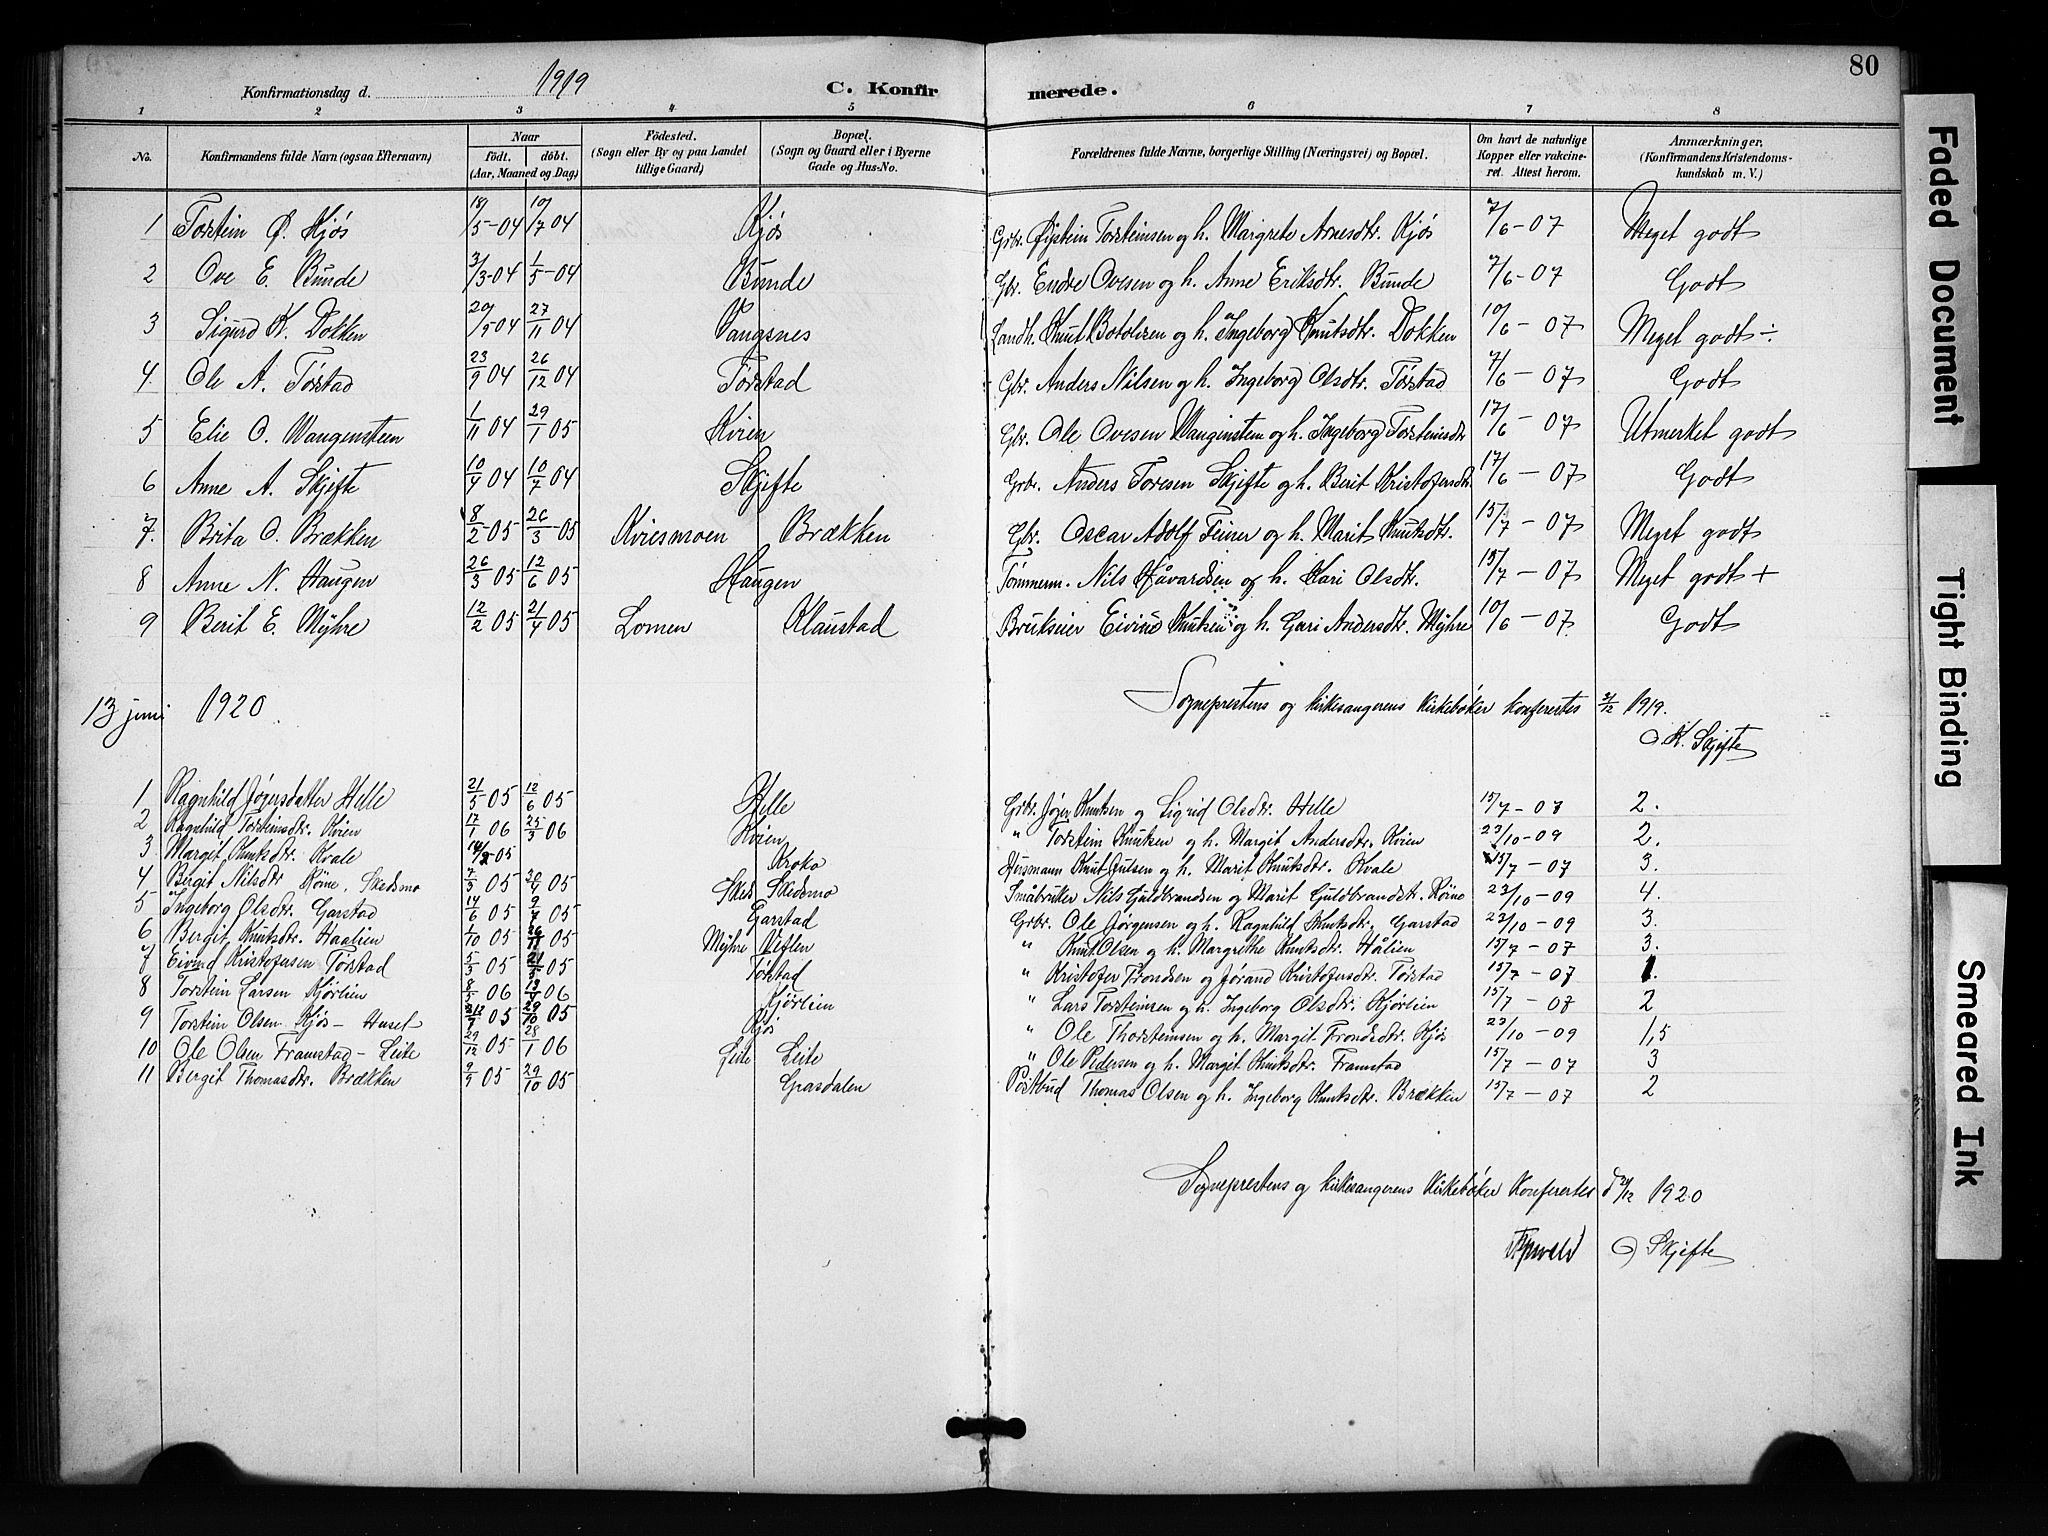 80
Konfirmationsdag d. 1919 C. Konfirmerede.
1 2 3 4 5 6 7 8
No. Konfirmandens fulde Navn (ogsaa Efternavn) Naar født. døbt. (Aar, Maaned og Dag) Fødested. (Sogn eller By og paa Landet tillige Gaard) Bopæl. (Sogn og Gaard eller i Byerne Gade og Hus-No. Forældrenes fulde Navne, borgerlige Stilling (Næringsvei) og Bopæl. Om havt de naturlige Kopper eller vakcineret. Attest herom. Anmærkninger, (Konfirmandens Kristendomskundskab m. V.)
1 Torstein Ø. Kjøs 18/5-04 10/7 04 Kjøs Grbr. Øistein Torsteinsen og h. Margrete Arnesdtr. Kjøs 7/6-07 Meget godt
2 Ove E. Bunde 3/3-04 1/5-04 Bunde Gbr. Endre Ovesen og h. Anne Eriksdtr. Bunde 7/6-07 Godt
3 Sigurd K. Dokken 20/9 04 27/11 04 Vangsnes Landh. Knut Botolvsen og h. Ingeborg Knutsdtr. Dokken 10/6-07 Meget godt ÷
4. Ole A. Tørstad 23/9 04 26/12 04 Tørstad Gbr. Anders Nilsen og h. Ingeborg Olsdtr. Tørstad 7/6-07 Godt
5 Elie O. Wangensteen 1/11 04 29/1 05 Kvien Gbr. Ole Ovesen Wangensteen og h. Ingeborg Torsteinsdtr 17/6-07 Utmerket godt
6 Anne A. Skjefte 10/4 04 10/7 04 Skjefte Grbr. Anders Toresen Skjefte og h. Berit Kristofersdtr 17/6-07 Godt
7. Brita O. Brækken 8/2-05 26/3-05 Kviesmoen Brækken Gbr. Oscar Adolf Feiner og h. Marit Knutsdtr. 15/7-07 Meget godt
8 Anne N. Haugen 26/3 05 12/6 05 Haugen Tømmerm. Nils Håvardsen og h. Kari Olsdtr. 15/7-07 Meget godt +
9 Berit E. Myhre 12/2 05 21/4 05 Lomen Klaustad Brukseier Eivind Knutsen og h. Guri Andersdtr. Myhre 10/6-07 Godt
Sogneprestens og kirkesangerens kirkebøker konfereres 3/12 1919.
O. K. Skjefte
13 juni 1920
1 Ragnhild Jøgersdatter Helle 21/5 05 12/6 05 Helle Grbr. Jøger Knutsen og Sigrid Olsdtr. Helle 15/7-07 2.
2 Ragnhild Torsteinsdtr. Kvien 17/1 06 25/3 06 Kvien " Torstein Knutsen og h. Margit Andersdtr. Kvien 23/10-09 2.
3 Margit Knutsdtr. Kvale 14/2-05 Kroko Husmann Knut Julsen og h. Marit Knutsdtr. Kvale 15/7-07 3.
4 Bergit Nilsdtr Røine. Skedsmo 7/3 05 20/4 05 Sked Skedsmo Småbruker Nils Guldbrandsen og Marit Guldbrandsdtr. Røine 23/10-09 4.
5 Ingeborg Olsdtr. Garstad 14/6 05 9/7 05 Garstad Grbr. Ole Jørgensen og h. Ragnhild Knutsdtr. Garstad 23/10-09 3.
6 Bergit Knutsdtr. Haalien 1/10 05 26/11 05 Myhre Veflen " Knut Olsen og h. Margrethe Knutsdtr. Hålien 15/7-07 3.
7 Eivind Kristofersen Tørstad 5/3 05 21/5 05 Tørstad " Kristofer Trondsen og Jørand Kristofersdtr. Tørstad 15/7-07 1.
8 Torstein Larsen Kjørlien 8/5 06 06 Kjørlien " Lars Torsteinsen og h. Ingeborg Olsdtr. Kjørlien 15/7-07 2
9 Torstein Olsen Kjøs- Huset 05 29/10 05 Kjøs " Ole Thorsteinsen og h. Margit Trondsdtr. Kjøs 23/10-09 1,5
10 Ole Olsen Framstad- Leite 29/12 05 28/1 06 Leite Leite " Ole Pedersen og h. Margit Knutsdtr. Framstad 15/7-07 3
11 Bergit Thomasdtr. Brækken 9/9 05 29/10 05 Grasdalen Postbud Thomas Olsen og h. Ingeborg Knutsdtr. Brækken 15/7-07 2
Sogneprestens og kirkesangerens kirkebøker konfereres d /12 1920
O Skjefte
Faded Document
Tight Binding
Smeared Ink